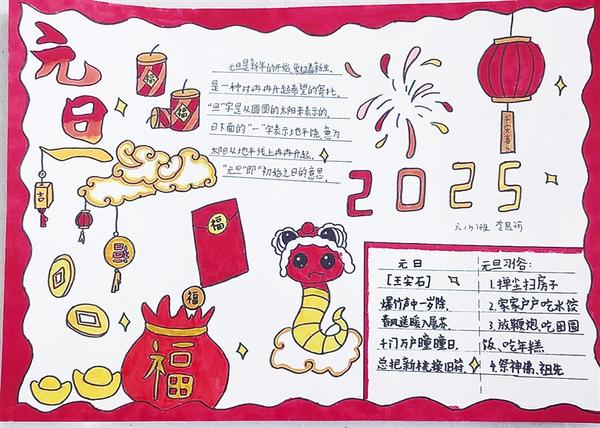 元旦
元旦是新年的开始,象征着新生,
是一种对冉冉升起希望的寄托。
"旦"字是以圆圆的太阳来表示的。
日下面的"一"字表示地平线,意为
太阳从地平线上冉冉升起。
"元旦"即"初始之日的意思。
福
福
平安喜乐
2025
吉
福
福
福
元日
[王安石]
爆竹声中一岁除,
春风送暖入屠苏。
千门万户曈曈日,
总把新桃换旧符。
元旦习俗:
1.掸尘扫房子
2.家家户户吃水饺
3.放鞭炮吃团圆
饭、吃年糕
4.祭神佛、祖先